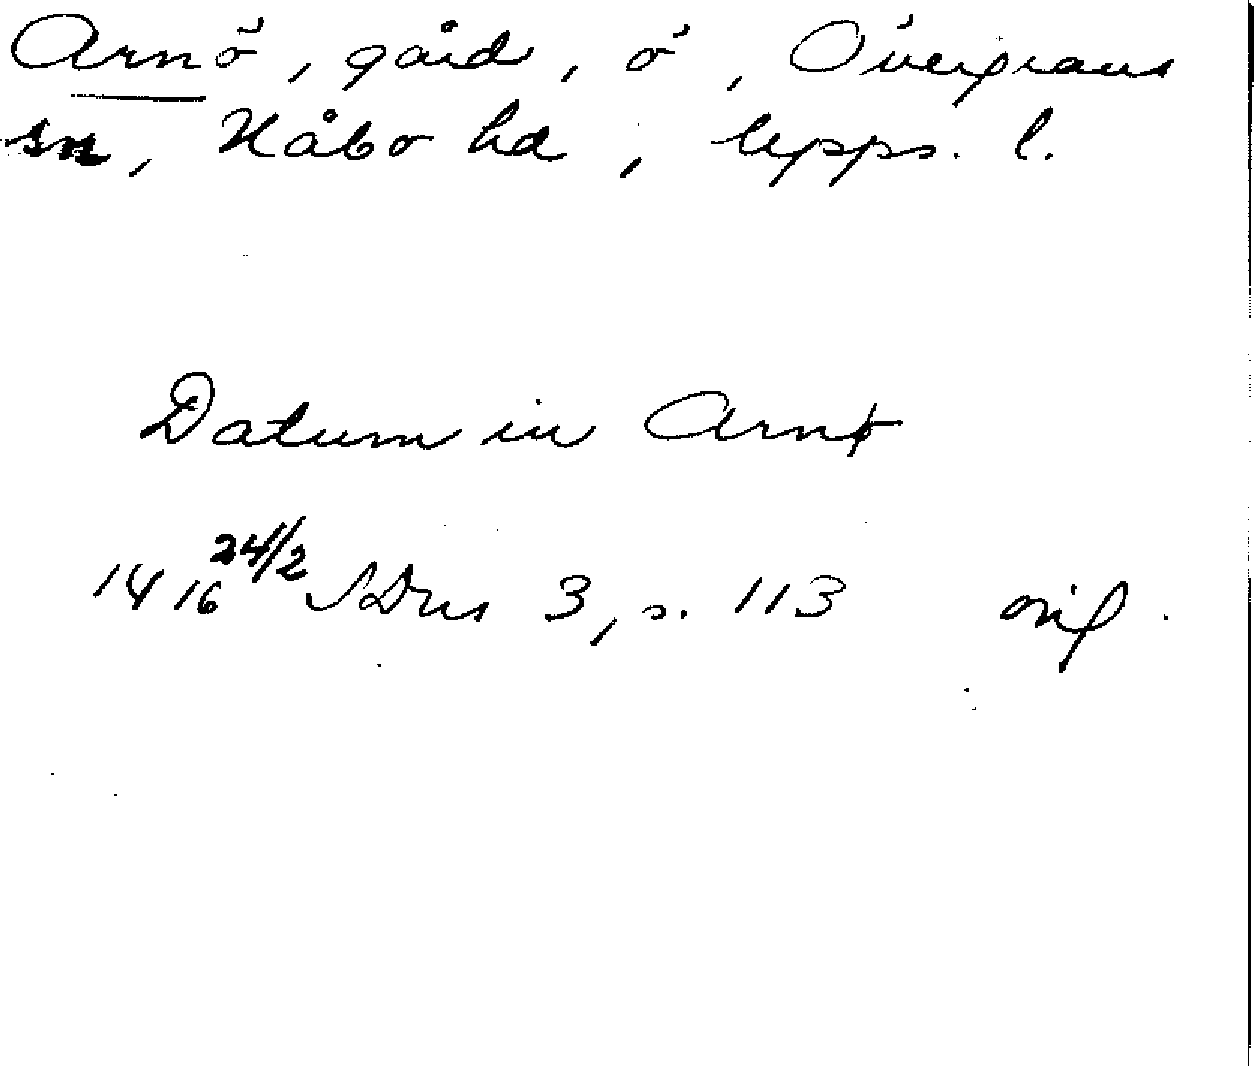 Arnö, gård, ö, Övergrans
sn, Håbo hd, Upps. l.
Datum in Arnø
1416 24/2 SDns 3, s. 113 orig.